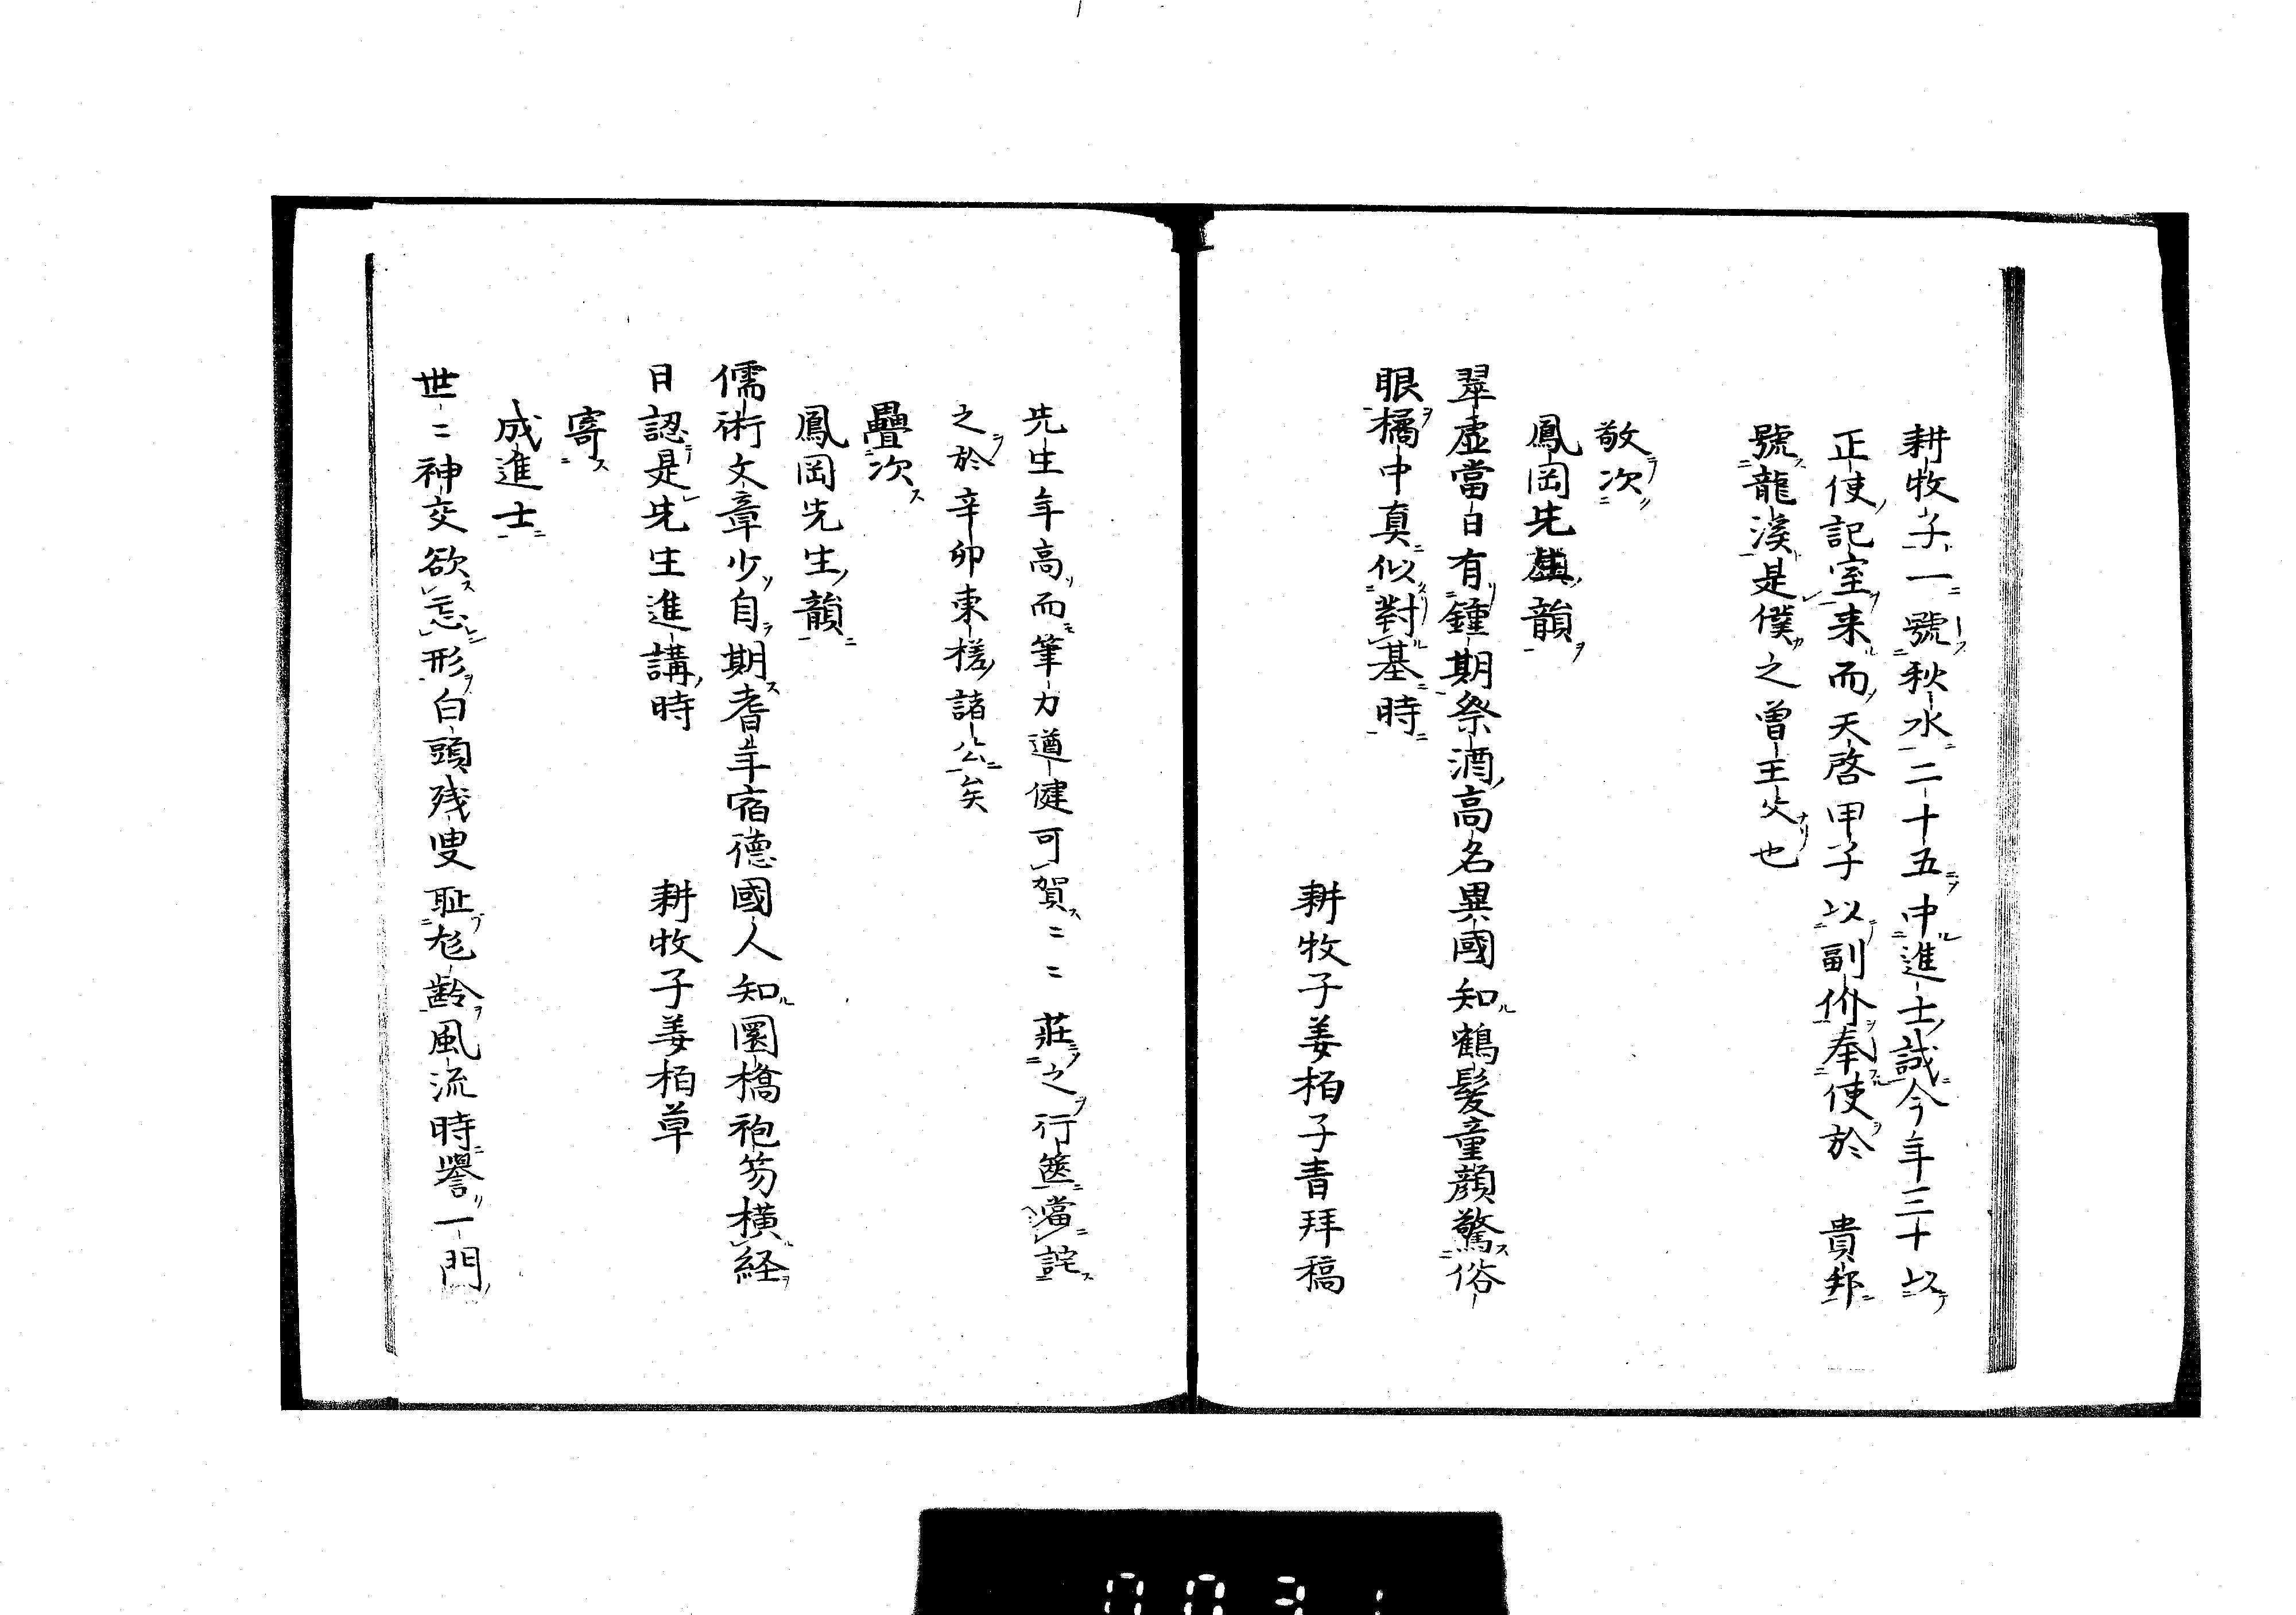 耕牧子一號秋水二十五中進士誠今年三十以
正使記室来而天啓甲子以副价奉使於　貴邦
號龍溪是僕之曽王父也
敬次
鳳岡先生韻
翠虚當日有鍾期祭酒高名異國知鶴髪童顔驚俗
眼橘中真似對基時
耕牧子姜栢子青拜稿
先生年高而筆力遒健可賀〻〻莊之行篋當詫
之於辛卯東槎諸公矣
疊次
鳳岡先生韻
儒術文章少自期耆年宿德國人知圜橋袍笏横経
日認是先生進講時
耕牧子姜栢草
寄
成進士
世〻神交欲忘形白頭残叟耻尨齢風流時譽一門
0031